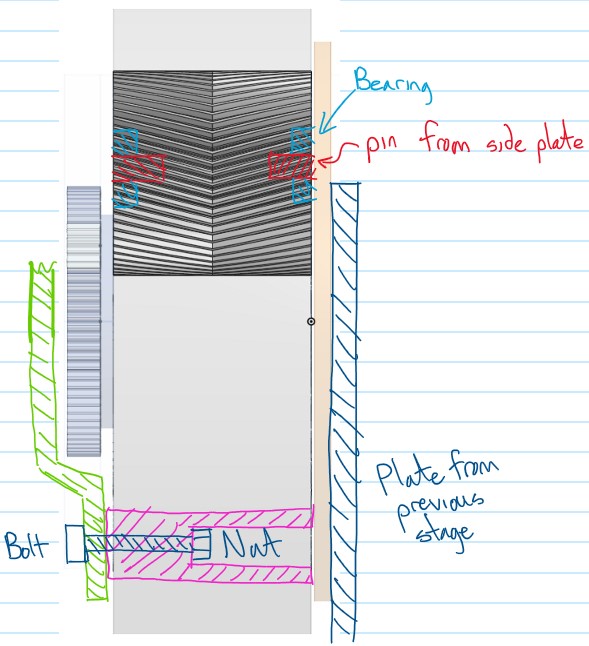 Bearing
pin from side plate
Plate from
previous
stage
Bolt
Nut